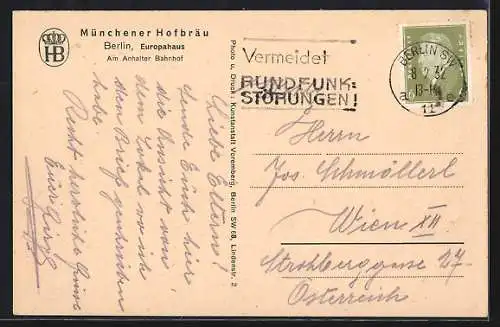 HB
Münchener Hofbräu
Berlin, Europahaus
Am Anhalter Bahnhof
Liebe Eltern!
sende Euch hier
die Ansicht von
dem Lokal wo ich
den Brief geschrieben
habe.
Recht herzliche Grüsse
Euer
Photo u. Druck: Kunstanstalt Voremberg, Berlin SW 68, Lindenstr. 2
Vermeidet
RUNDFUNK-
STÖRUNGEN!
BERLIN SW
32
11
Herrn
Jos. Schmöllerl
Wien XII
Strohberggasse 27
Österreich